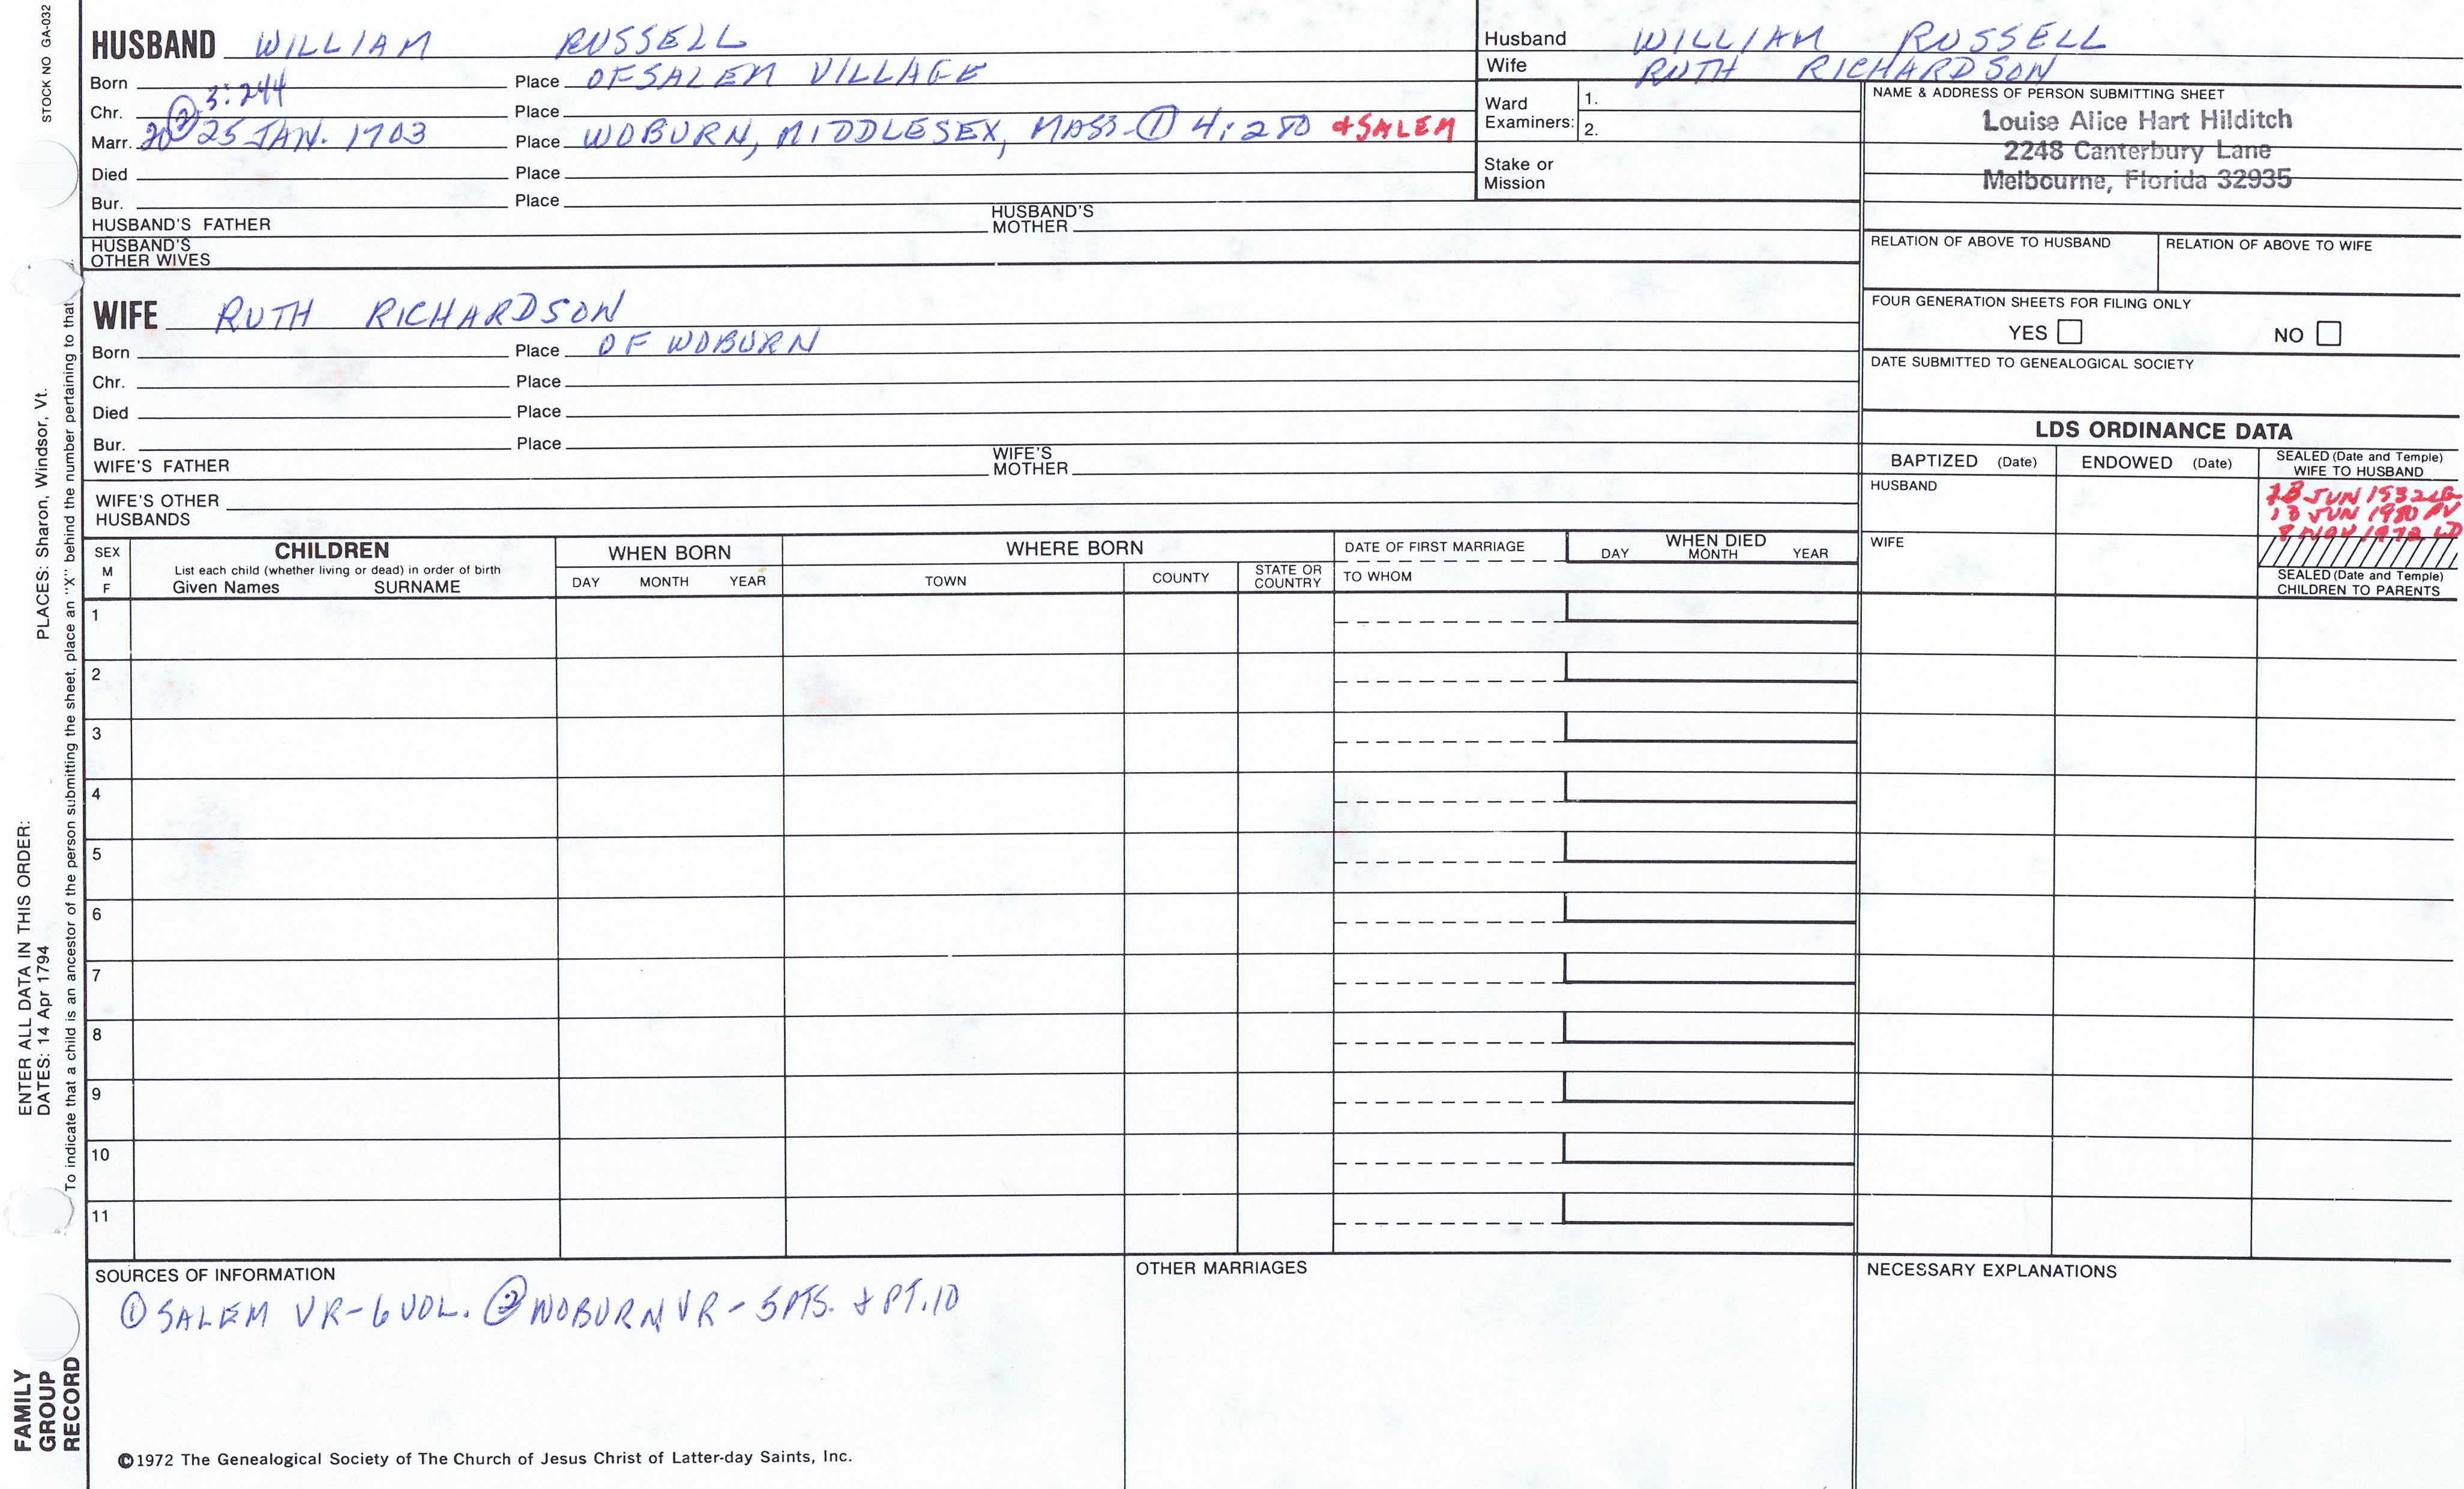 STOCK NO. GA-032
PLACES: Sharon, Windsor, Vt.
ENTER ALL DATA IN THIS ORDER:
DATES: 14 Apr 1794
To indicate that a child is an ancestor of the person submitting the sheet, place an "X" behind the number pertaining to that
FAMILY
GROUP
RECORD
HUSBAND WILLIAM RUSSELL
Born Place OF SALEM VILLAGE
② 3:244
Chr. Place
Marr. 25 JAN. 1703 Place WOBURN, MIDDLESEX, MASS - ① 4:280 & SALEM
Died Place
Bur. Place
HUSBAND'S FATHER HUSBAND'S MOTHER
HUSBAND'S OTHER WIVES
Husband WILLIAM RUSSELL
Wife RUTH RICHARDSON
Ward Examiners: 1.
2.
Stake or Mission
NAME & ADDRESS OF PERSON SUBMITTING SHEET
Louise Alice Hart Hilditch
2248 Canterbury Lane
Melbourne, Florida 32935
RELATION OF ABOVE TO HUSBAND RELATION OF ABOVE TO WIFE
FOUR GENERATION SHEETS FOR FILING ONLY
YES NO
DATE SUBMITTED TO GENEALOGICAL SOCIETY
WIFE RUTH RICHARDSON
Born Place OF WOBURN
Chr. Place
Died Place
Bur. Place
WIFE'S FATHER WIFE'S MOTHER
WIFE'S OTHER HUSBANDS
LDS ORDINANCE DATA
BAPTIZED (Date) ENDOWED (Date) SEALED (Date and Temple) WIFE TO HUSBAND
HUSBAND
JUN 1932 LG
JUN 1980 PV
8 NOV 1972
WIFE
SEALED (Date and Temple)
CHILDREN TO PARENTS
SEX
M
F
CHILDREN
List each child (whether living or dead) in order of birth
Given Names SURNAME
WHEN BORN
DAY MONTH YEAR
WHERE BORN
TOWN COUNTY STATE OR COUNTRY
DATE OF FIRST MARRIAGE
TO WHOM
WHEN DIED
DAY MONTH YEAR
1
2
3
4
5
6
7
8
9
10
11
SOURCES OF INFORMATION
① SALEM VR - 6 VOL. ② WOBURN VR - 5 PTS. & PT. 10
OTHER MARRIAGES
NECESSARY EXPLANATIONS
©1972 The Genealogical Society of The Church of Jesus Christ of Latter-day Saints, Inc.